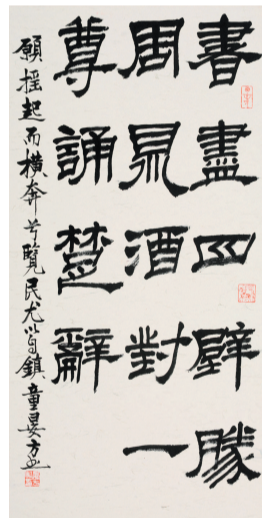 書盡四壁勝
周酒對一
尊誦楚辭
願搖起而橫奔兮覽民尤以自鎮童晏方書